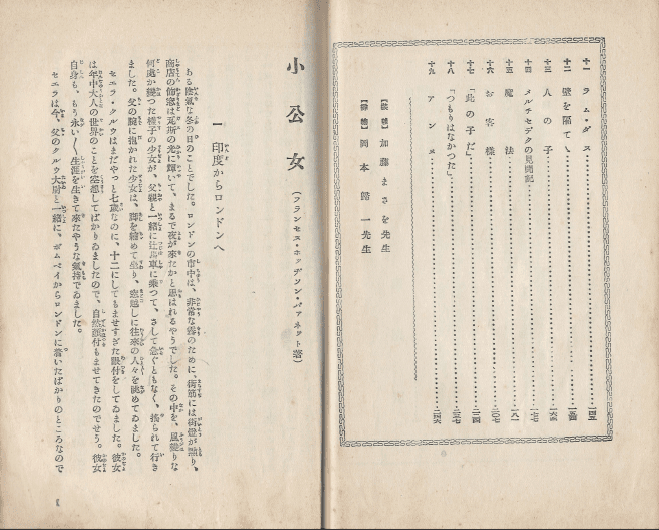 十一 ラム・ダス
十二 壁を隔てゝ
十三 人の子
十四 メルチセデクの見聞記
十五 魔法
十六 お客様
十七 「此の子だ」
十八 「つもりはなかつた」
十九 アンヌ
【装幀】 加藤まさを先生
岡本歸一先生
小公女 (フランセス・ホッヂソン・バァネット著)
一 印度からロンドンへ
ある陰氣な冬の日のことでした。ロンドンの市中は、非常な霧のために、街筋には街燈が點り、
商店の飾窓は瓦斯の光に輝いて、まるで夜が來たかと思はれるやうでした。その中を、風變りな
何處か變つた樣子の少女が、父親と一緒に辻馬車に乘つて、さして急ぐともなく、搖られて行き
ました。父の腕に抱かれた少女は、脚を縮めて坐り、窓越しに往來の人々を眺めてゐました。
セエラ・クルウはまだやっと七歳なのに、十二にしてもませすぎた眼付をしてゐました。彼女
は年中大人の世界のことを空想してばかりゐましたので、自然顔付もませてきたのでせう。彼女
自身も、もう永い〱生涯を生きて來たやうな氣持でゐました。
セエラは今、父のクルウ大尉と一緒に、ボムベイからロンドンに着いたばかりのところなので